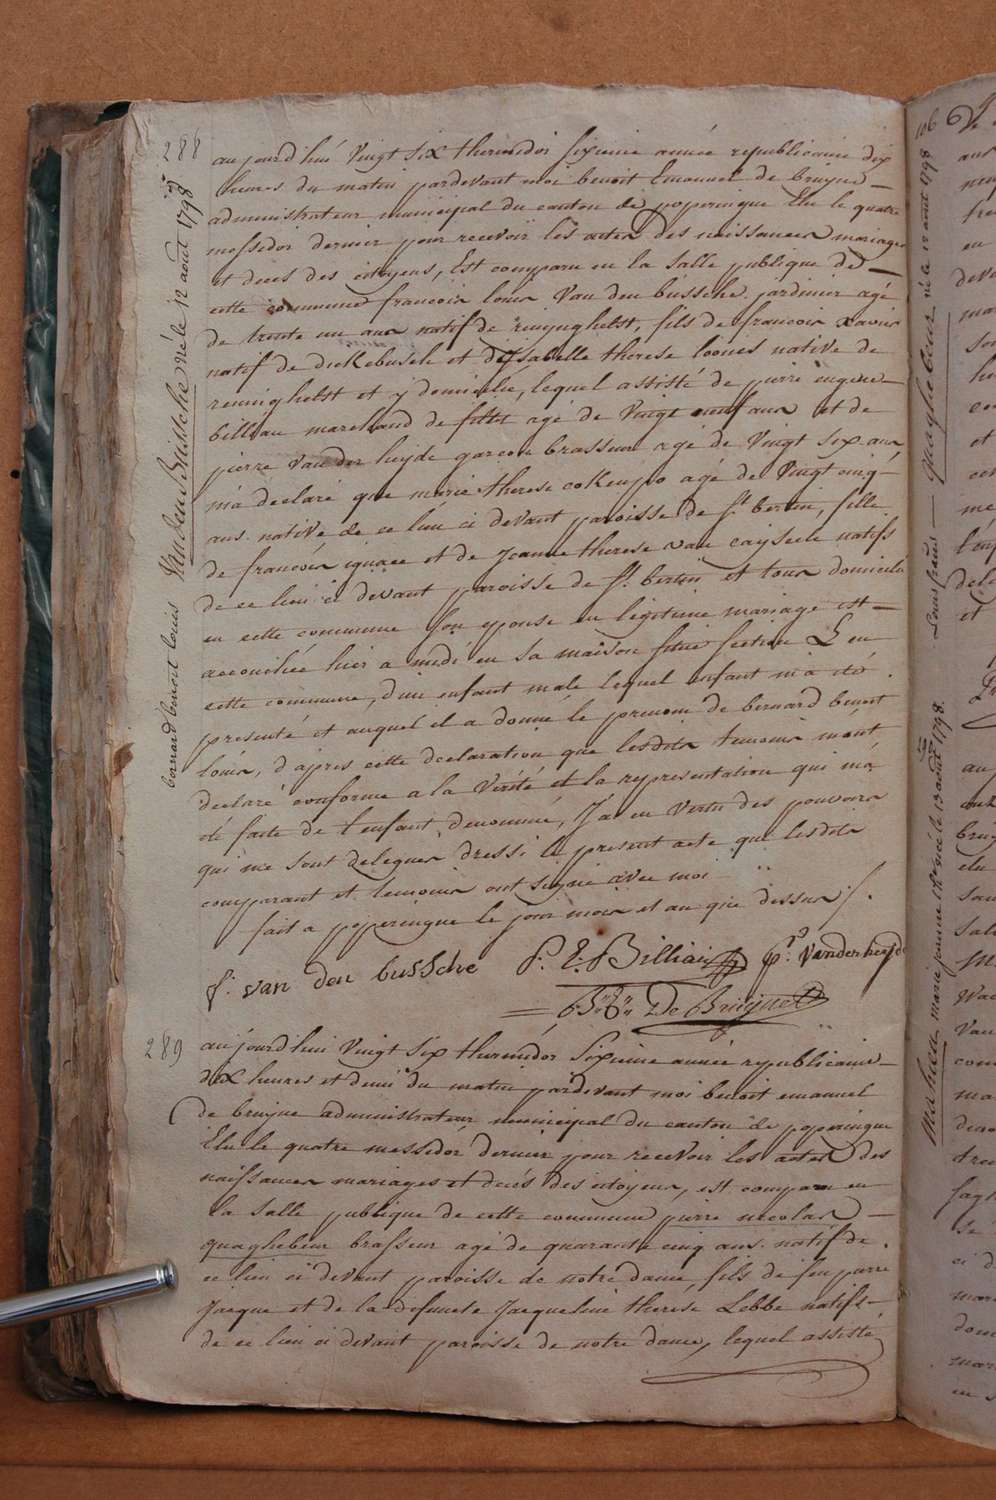 288
aujourd'hui vingt six thermidor sixieme année republicaine dix
heures du matin pardevant moi benoit Emanuel de bruÿne
administrateur municipal du canton de poperingue Elu le quatre
messidor dernier pour recevoir les actes des naissances mariages
et decés des citoyens, Est comparu en la salle publique de
cette commune francois louis van den bussche jardinier agé
de trente un ans natif de reninghelst, fils de francois xavier
natif de dickebusch et d'ysabelle therese loonis native de
reninghelst et y domicilié, lequel assisté de pierre eugene
billiau marchand de fillet agé de vingt neuf ans et de
pierre vander heÿde garcon brasseur agé de vingt six ans,
m'a declaré que marie therese cokenpo agé de vingt cinq
ans native de ce lieu ci devant paroisse de st. bertin, fille
de francois ignace et de jeanne therese van caÿseele natifs
de ce lieu ci devant paroisse de st. bertin et tous domicilé
en cette commune son epouse en legitime mariage est
accouchée hier a midi en sa maison situé section L en
cette commune, d'un enfant male lequel enfant m'a eté
presenté et auquel il a donné le prenom de bernard benoit
louis, d'apres cette declaration que lesdits temoins m'ont
declaré conforme a la verité et la representation qui m'a
eté faite de l'enfant denommé, j'ai en vertu des pouvoirs
qui me sont delegues dressé le present acte que lesdits
comparant et temoins ont signé avec moi
fait a poperingue le jour mois et an que dessus /.
f. van den bussche P. E. Billiau pr. Vanderheyde
B. E. De Bruijne
289
aujourd'hui vingt six thermidor sixieme année republicaine
dix heures et demi du matin pardevant moi benoit emanuel
de bruÿne administrateur municipal du canton de poperingue
Elu le quatre messidor dernier pour recevoir les actes des
naissances mariages et decés des citoyens, est comparu en
la salle publique de cette commune pierre nicolas
quaghebeur brasseur agé de quarante cinq ans natif de
ce lieu ci devant paroisse de notre dame, fils de feu pierre
jacque et de la defuncte jacqueline therese Lebbe natifs
de ce lieu ci devant paroisse de notre dame, lequel assisté
bernard benoit louis Vandenbussche né le 12 août 1798
106
Mahieu marie jeanne née le 13 août 1798.
Louis francois quaghebeur né le 12 août 1798